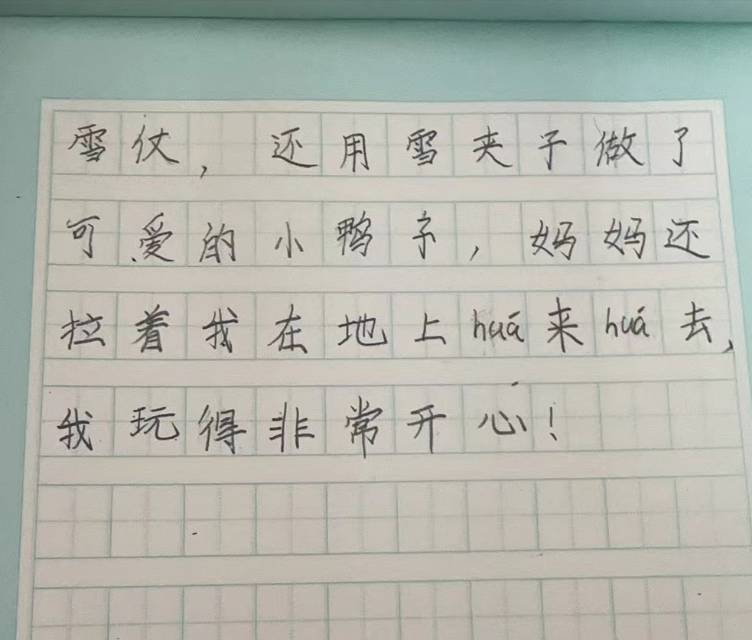 雪仗，还用雪夹子做了
可爱的小鸭子，妈妈还
拉着我在地上huá来huá去，
我玩得非常开心！